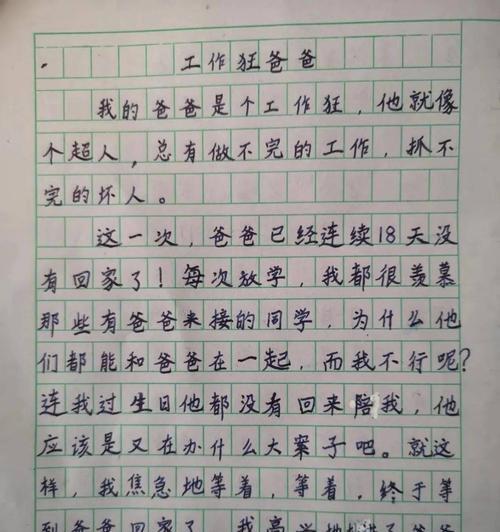 工作狂爸爸
我的爸爸是个工作狂，他就像
个超人，总有做不完的工作，抓不
完的坏人。
这一次，爸爸已经连续18天没
有回家了！每次放学，我都很羡慕
那些有爸爸来接的同学，为什么他
们都能和爸爸在一起，而我不行呢？
连我过生日他都没有回来陪我，他
应该是又在办什么大案子吧。就这
样，我焦急地等着，等着，终于等
到爸爸回家了